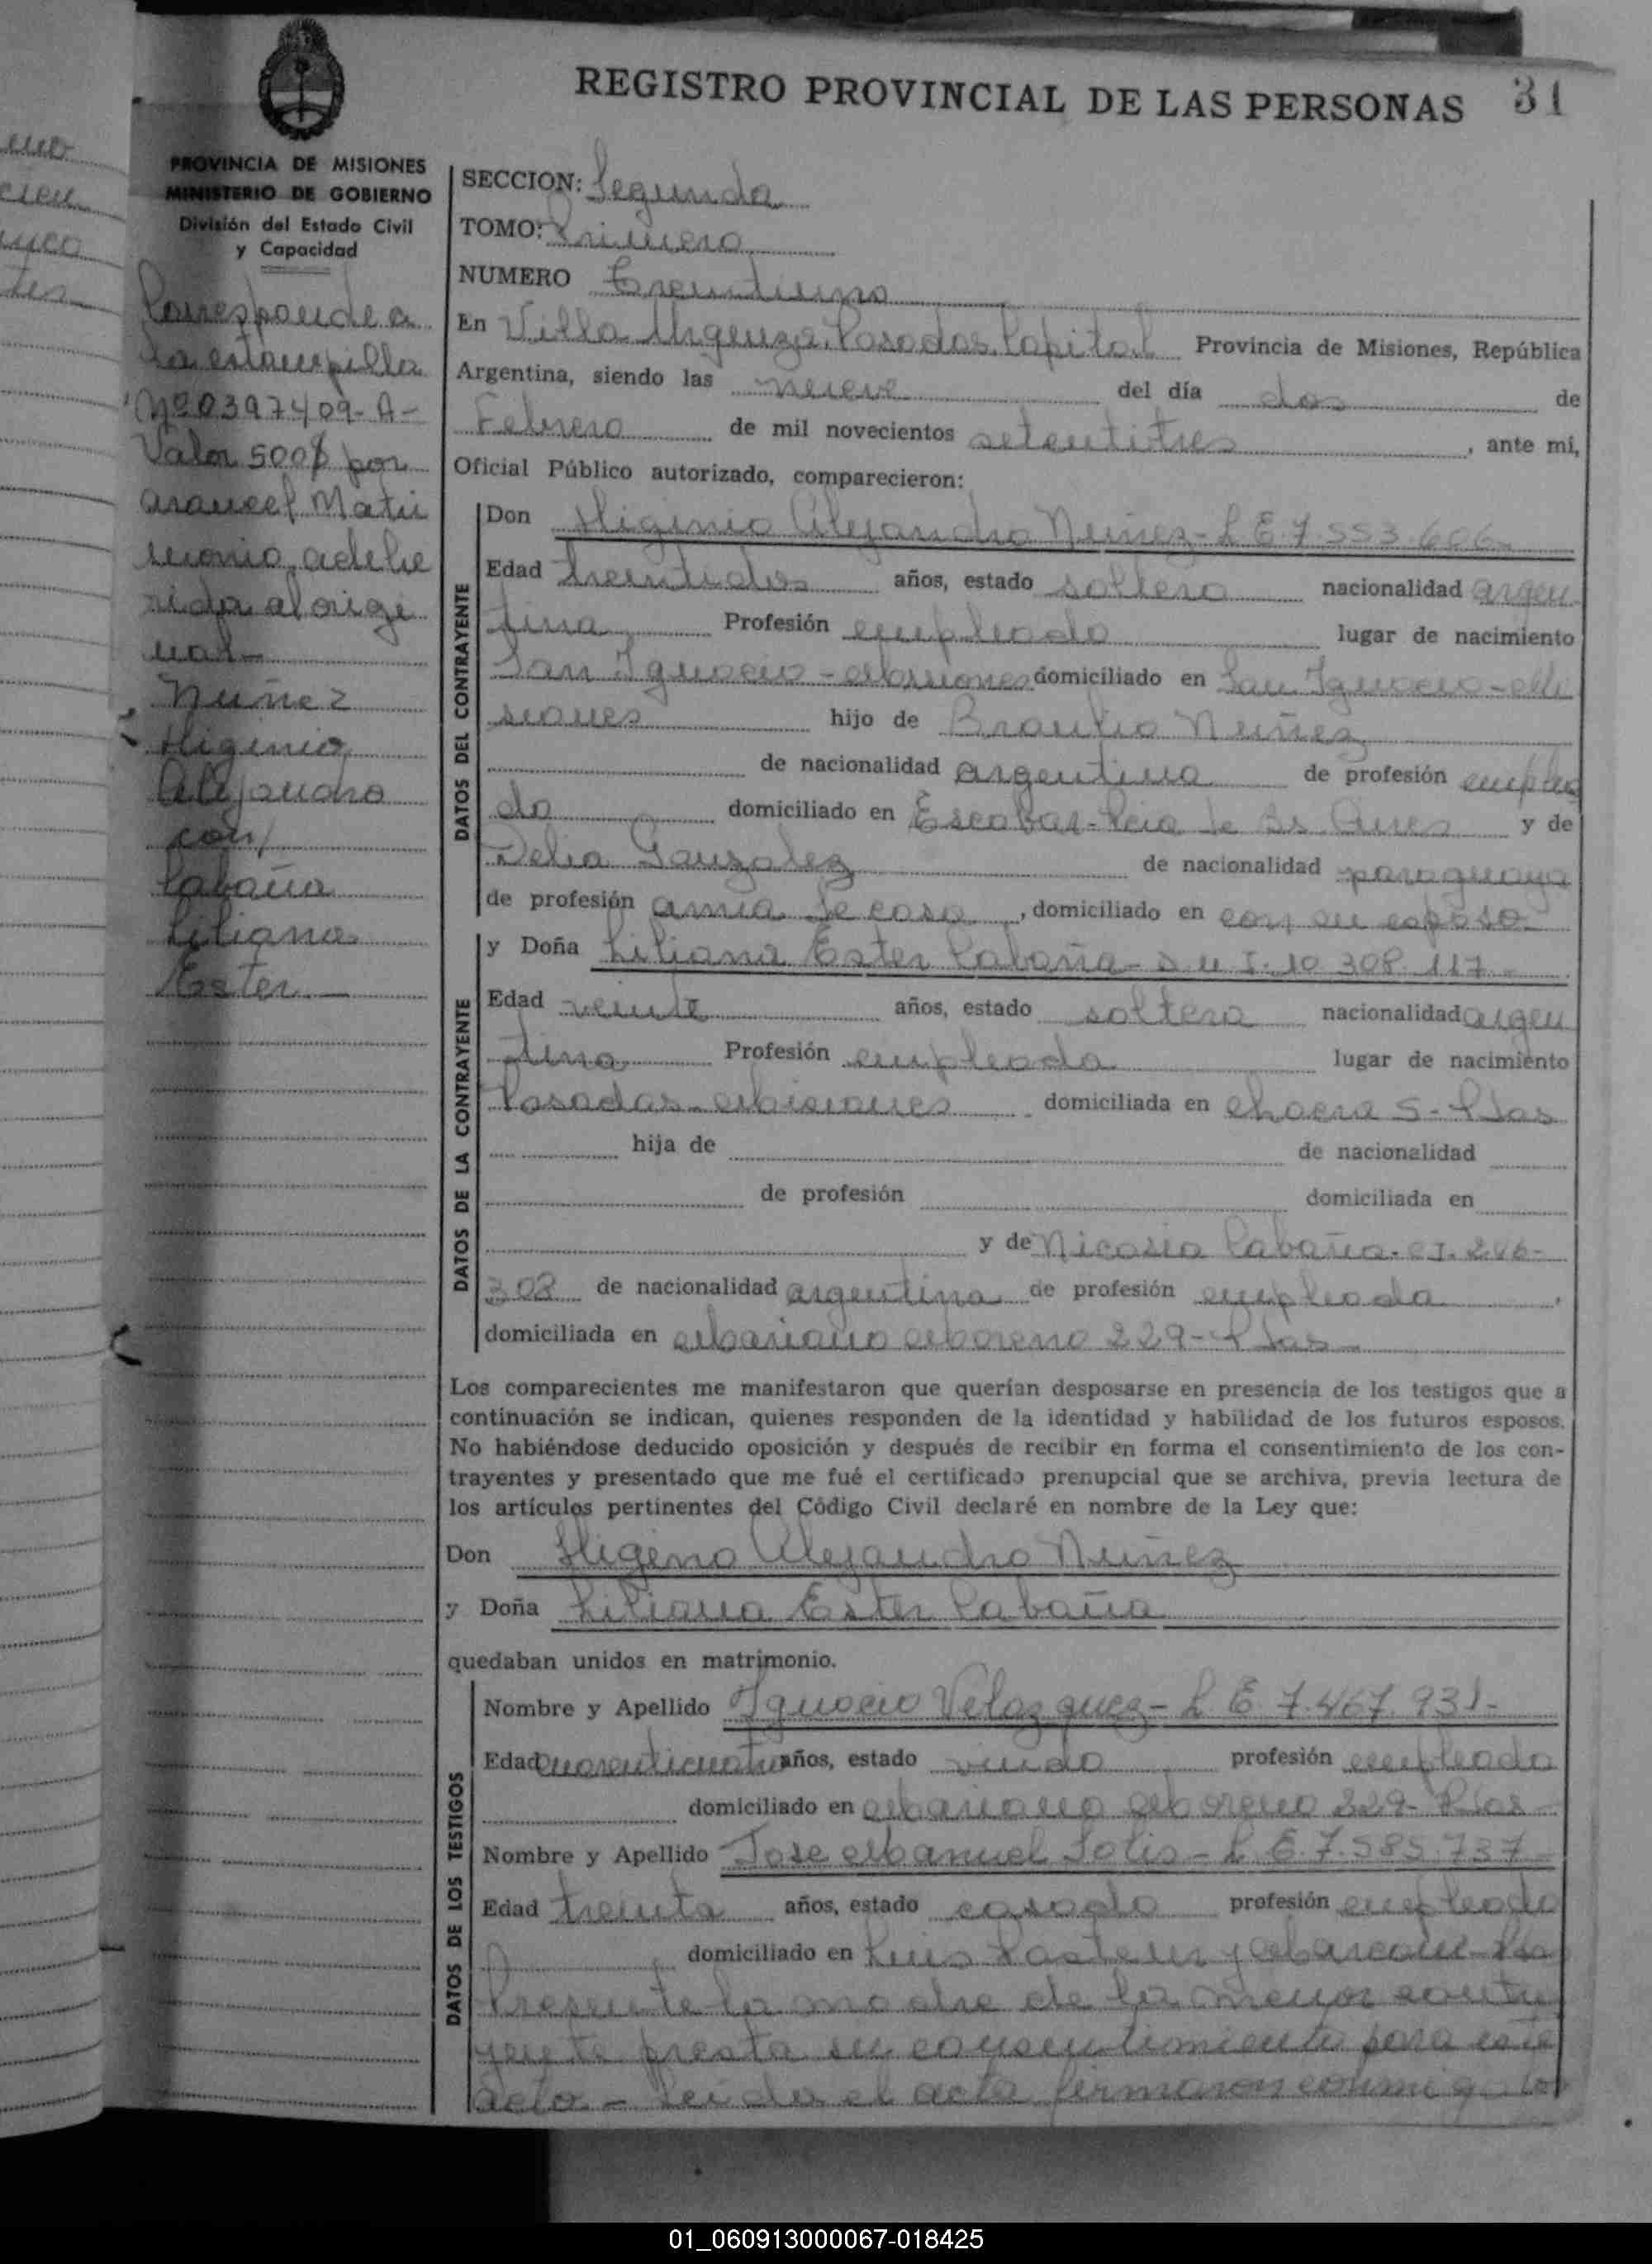 REGISTRO PROVINCIAL DE LAS PERSONAS 31
PROVINCIA DE MISIONES
MINISTERIO DE GOBIERNO
División del Estado Civil
y Capacidad
Corresponde a
la estampilla
Nº 0397409-A-
Valor 500$ por
arancel Matri
monio, adhe
rida al origi
nal-
Nuñez
Higinio
Alejandro
con/
Cabaña
Liliana
Ester-
SECCION: Segunda
TOMO: Primero
NUMERO Treintiuno
En Villa Urquiza, Posadas, Capital Provincia de Misiones, República
Argentina, siendo las nueve del día dos de
Febrero de mil novecientos setentitres, ante mi,
Oficial Público autorizado, comparecieron:
DATOS DEL CONTRAYENTE
Don Higinio Alejandro Nuñez- L E 7.553.606-
Edad treintidos años, estado soltero nacionalidad argen
tina Profesión empleado lugar de nacimiento
San Ignacio - Misiones domiciliado en San Ignacio-Mi
siones hijo de Braulio Nuñez
de nacionalidad argentina de profesión emplea
do domiciliado en Escobar- Pcia de Bs. Aires y de
Delia Gonzalez de nacionalidad paraguaya
de profesión ama de casa, domiciliado en con su esposo-
DATOS DE LA CONTRAYENTE
y Doña Liliana Ester Cabaña- D N I- 10 308.117-
Edad veinte años, estado soltera nacionalidad argen
tina Profesión empleada lugar de nacimiento
Posadas- Misiones domiciliada en chacra 5- Pdas
hija de de nacionalidad
de profesión domiciliada en
y de Nicasia Cabaña- CI. 206-
303 de nacionalidad argentina de profesión empleada,
domiciliada en Mariano Moreno 229- Pdas-
Los comparecientes me manifestaron que querían desposarse en presencia de los testigos que a
continuación se indican, quienes responden de la identidad y habilidad de los futuros esposos.
No habiéndose deducido oposición y después de recibir en forma el consentimiento de los con-
trayentes y presentado que me fué el certificado prenupcial que se archiva, previa lectura de
los artículos pertinentes del Código Civil declaré en nombre de la Ley que:
Don Higinio Alejandro Nuñez
y Doña Liliana Ester Cabaña
quedaban unidos en matrimonio.
DATOS DE LOS TESTIGOS
Nombre y Apellido Ignacio Velazquez- L E 7.467.931-
Edad cuarenticuatro años, estado viudo profesión empleado
domiciliado en Mariano Moreno 229- Pdas-
Nombre y Apellido Jose Manuel Solis- L E 7.585.737-
Edad treinta años, estado casado profesión empleado
domiciliado en Luis Pasteur y Marconi-
Presente la madre de la menor contra
yente presta su consentimiento para este
acto- Leida el acta firmaron conmigo los
01_060913000067-018425